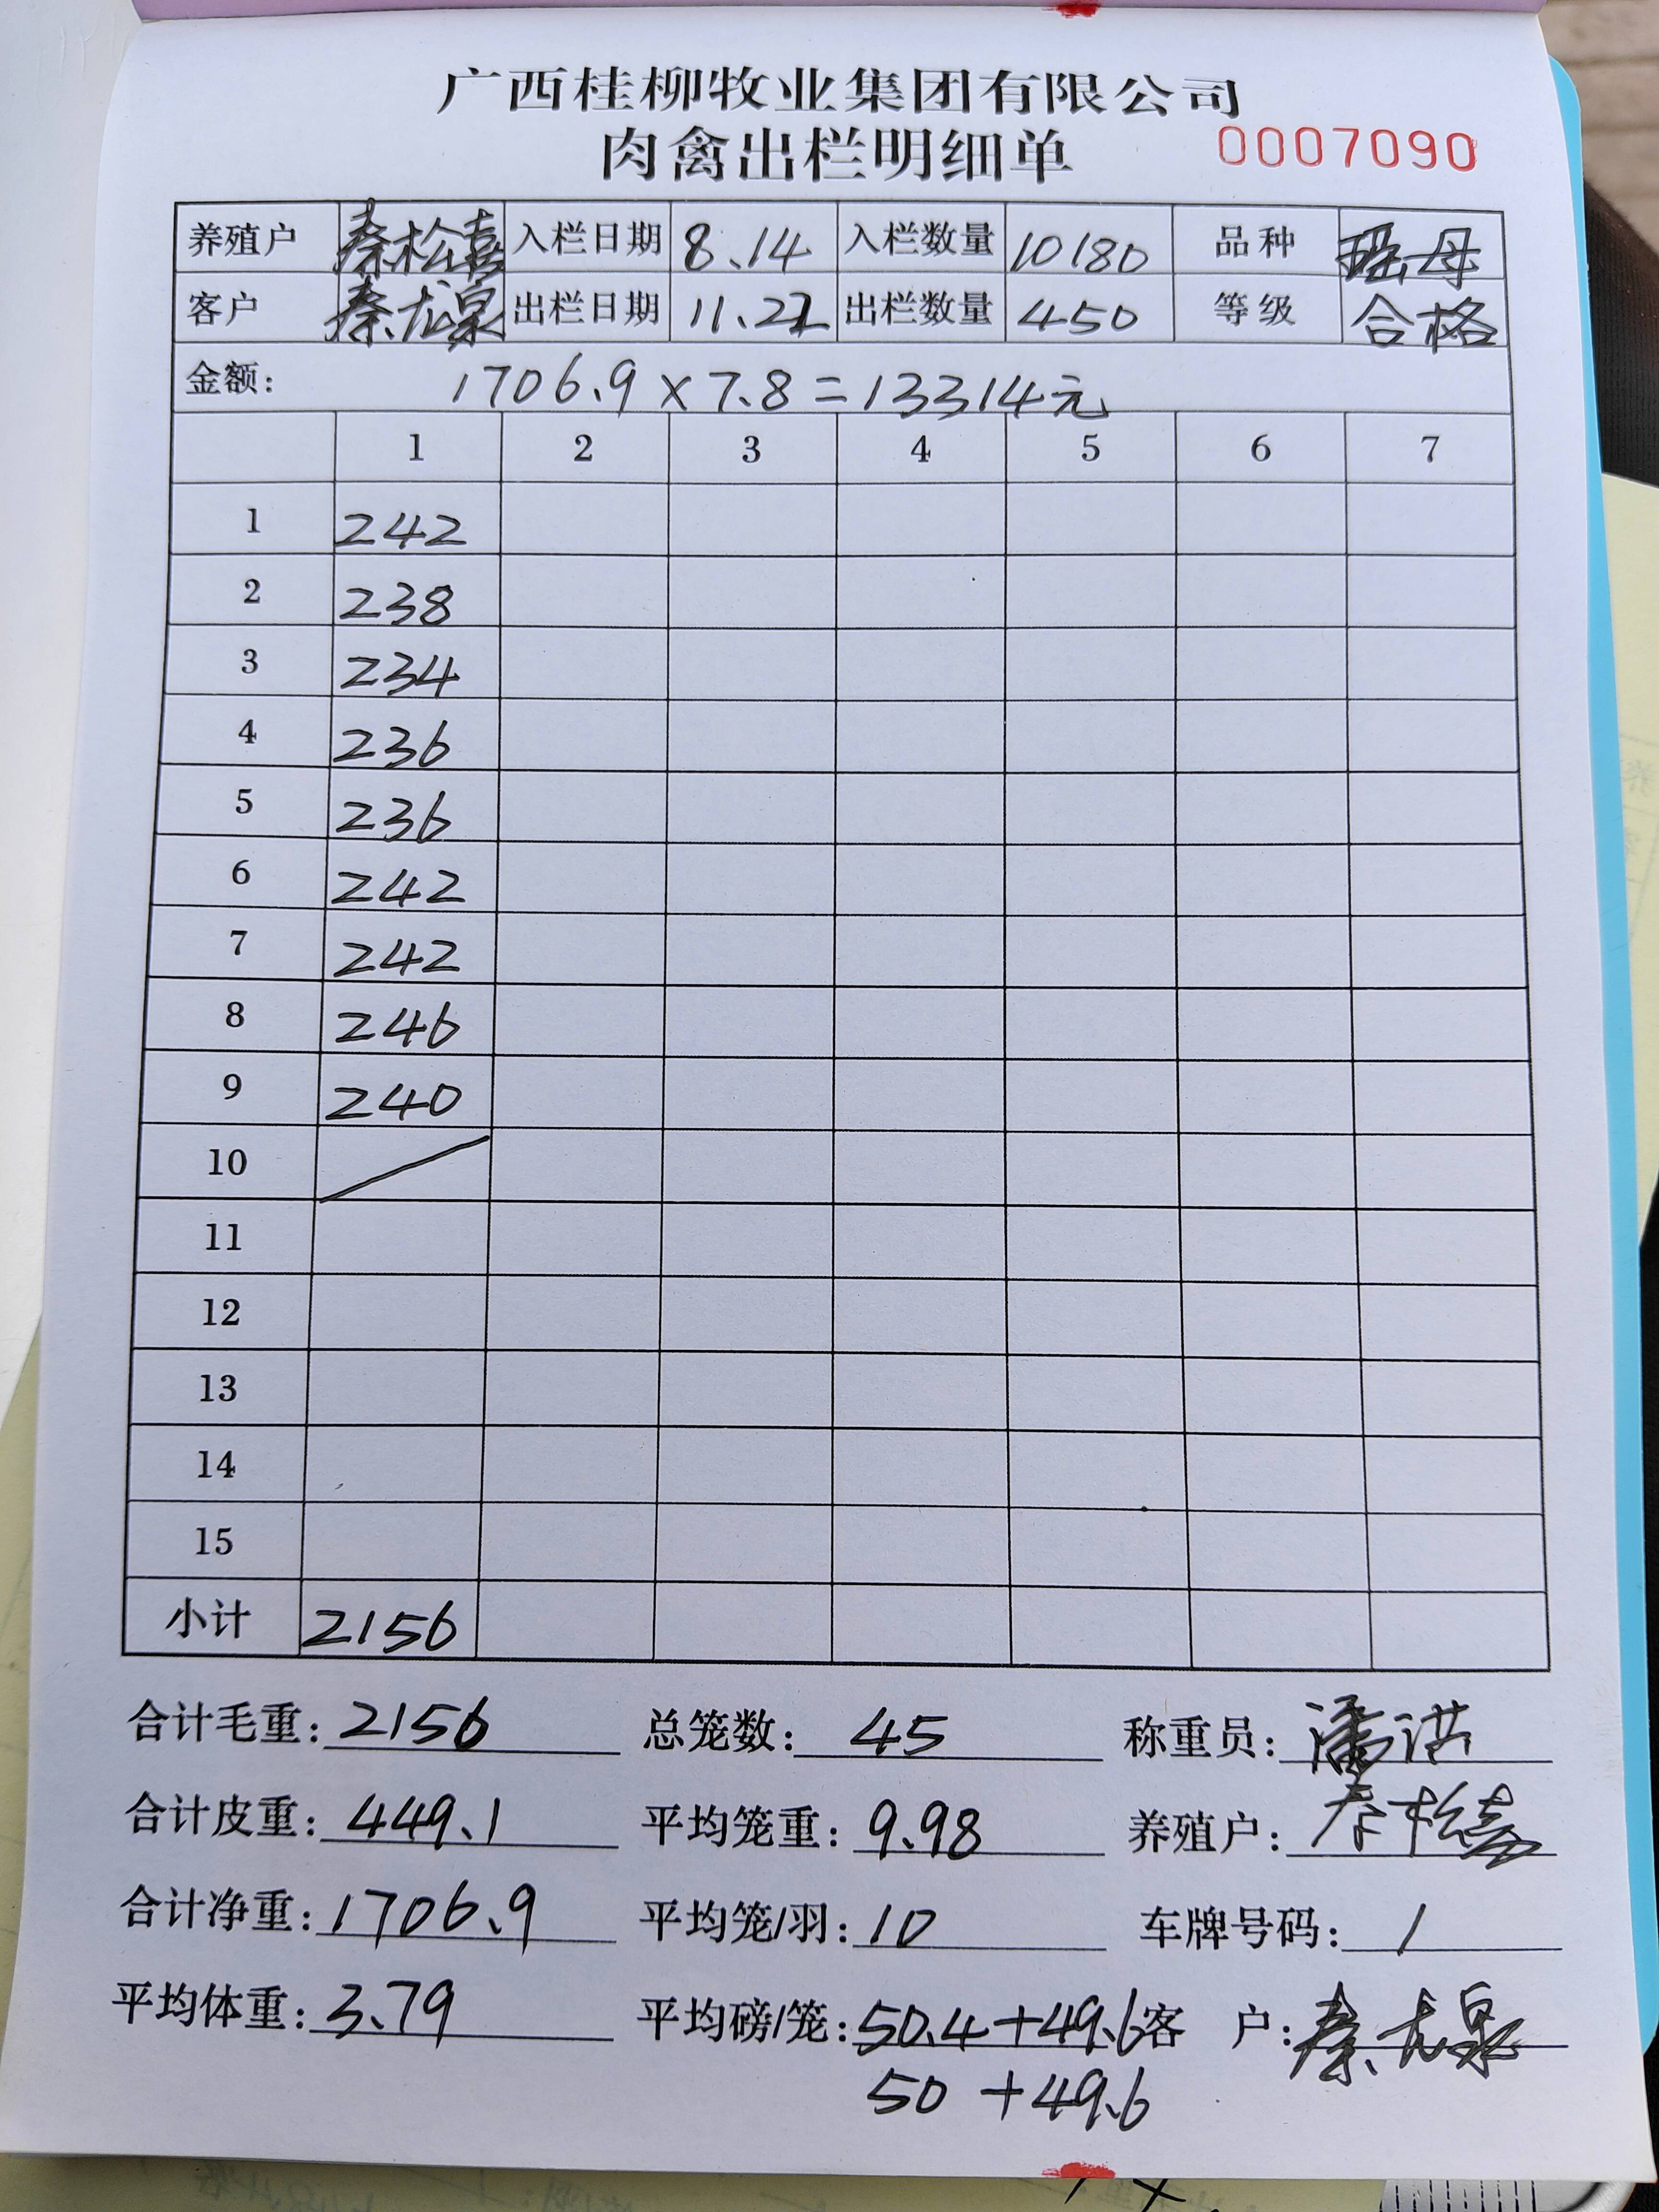 广西桂柳牧业集团有限公司
肉禽出栏明细单 0007090
养殖户 秦松喜 入栏日期 8.14 入栏数量 10180 品种 瑶母
客户 秦龙泉 出栏日期 11.22 出栏数量 450 等级 合格
金额: 1706.9×7.8=13314元
1 2 3 4 5 6 7
1 242
2 238
3 234
4 236
5 236
6 242
7 242
8 246
9 240
10
11
12
13
14
15
小计 2156
合计毛重: 2156 总笼数: 45 称重员: 潘洪
合计皮重: 449.1 平均笼重: 9.98 养殖户: 秦松喜
合计净重: 1706.9 平均笼/羽: 10 车牌号码: /
平均体重: 3.79 平均磅/笼: 50.4+49.6 客 户: 秦龙泉
50 +49.6